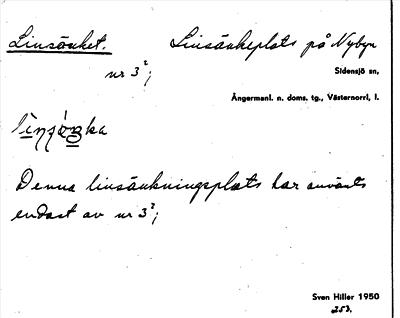 Linsänket. Linsänkeplats på Nybyn
nr 3²;
Sidensjö sn,
Ångermanl. n. doms. tg., Västernorrl, l.
Denna linsänkningsplats har använts
endast av nr 3²;
Sven Hiller 1950
253.